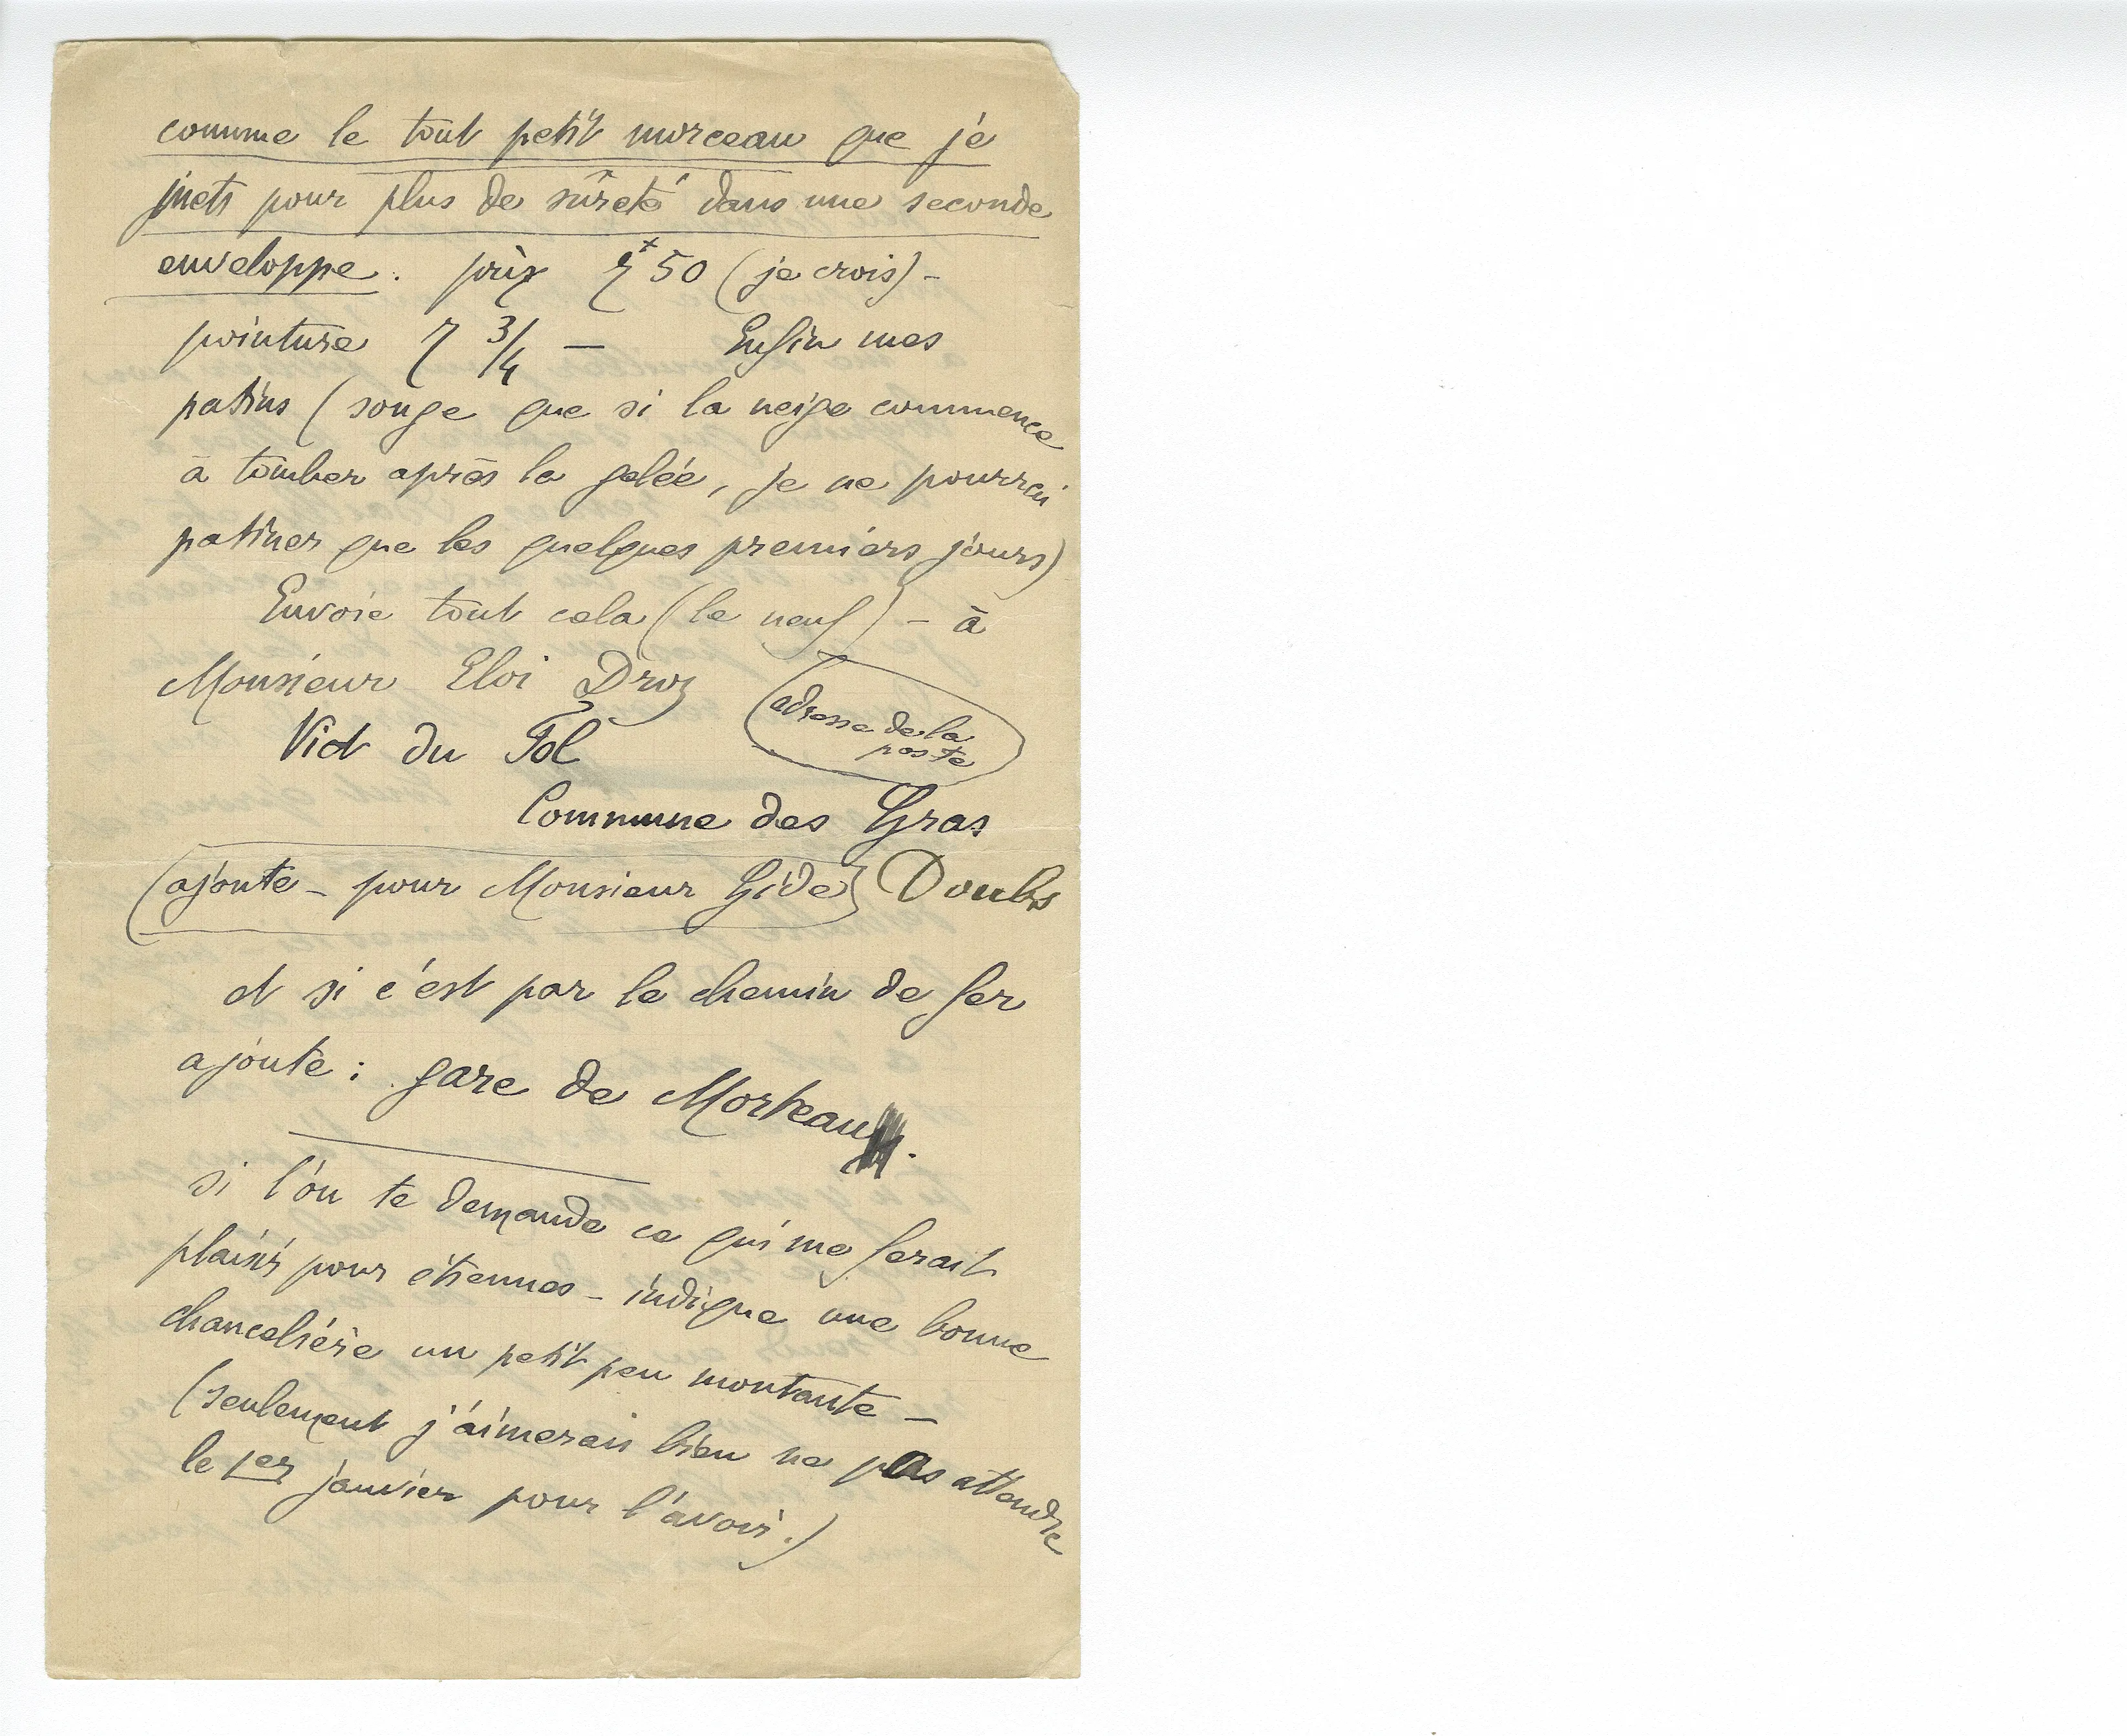 comme le tout petit morceau que je
mets pour plus de sûreté dans une seconde
enveloppe. prix 7+50 (je crois) -
pointure 7 3/4 — Enfin mes
patins (songe que si la neige commence
à tomber après la gelée, je ne pourrai
patiner que les quelques premiers jours)
Envoie tout cela (le neuf) - à
Monsieur Eloi Droz
(adresse de la
poste)
Vict du Fol
Commune des Gras
(ajoute - pour Monsieur Gide) Doubs
et si c'est par le chemin de fer
ajoute : gare de Morteau.
si l'on te demande ce qui me ferait
plaisir pour étrennes - indique une bonne
chancelière un petit peu montante -
(seulement j'aimerais bien ne pas attendre
le 1er janvier pour l'avoir.)